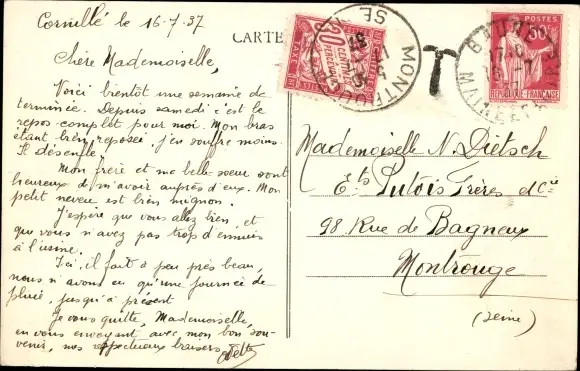 Cornillé le 16-7-37
Chère Mademoiselle,
Voici bientôt une semaine de
terminée. Depuis samedi c'est le
repos complet pour moi. Mon bras
étant bien reposée, j'en souffre moins.
Il désenfle.
Mon frère et ma belle-soeur sont
heureux de m'avoir auprès d'eux. Mon
petit neveu est bien mignon.
J'espère que vous allez bien, et
que vous n'avez pas trop d'ennuis
à l'usine.
Ici, il fait à peu près beau,
nous n'avons eu qu'une journée de
pluie, jusqu'à présent
Je vous quitte, Mademoiselle,
en vous envoyant avec mon bon sou-
venir, mes respectueux baisers
CARTE
50 CENTIMES
PERCEVOIR
MONTROUGE
SEINE
T
POSTES
50c
RÉPUBLIQUE FRANÇAISE
Mademoiselle N. Dietsch
Ets Putois Frères et Cie
98 Rue de Bagneux
Montrouge
(Seine)